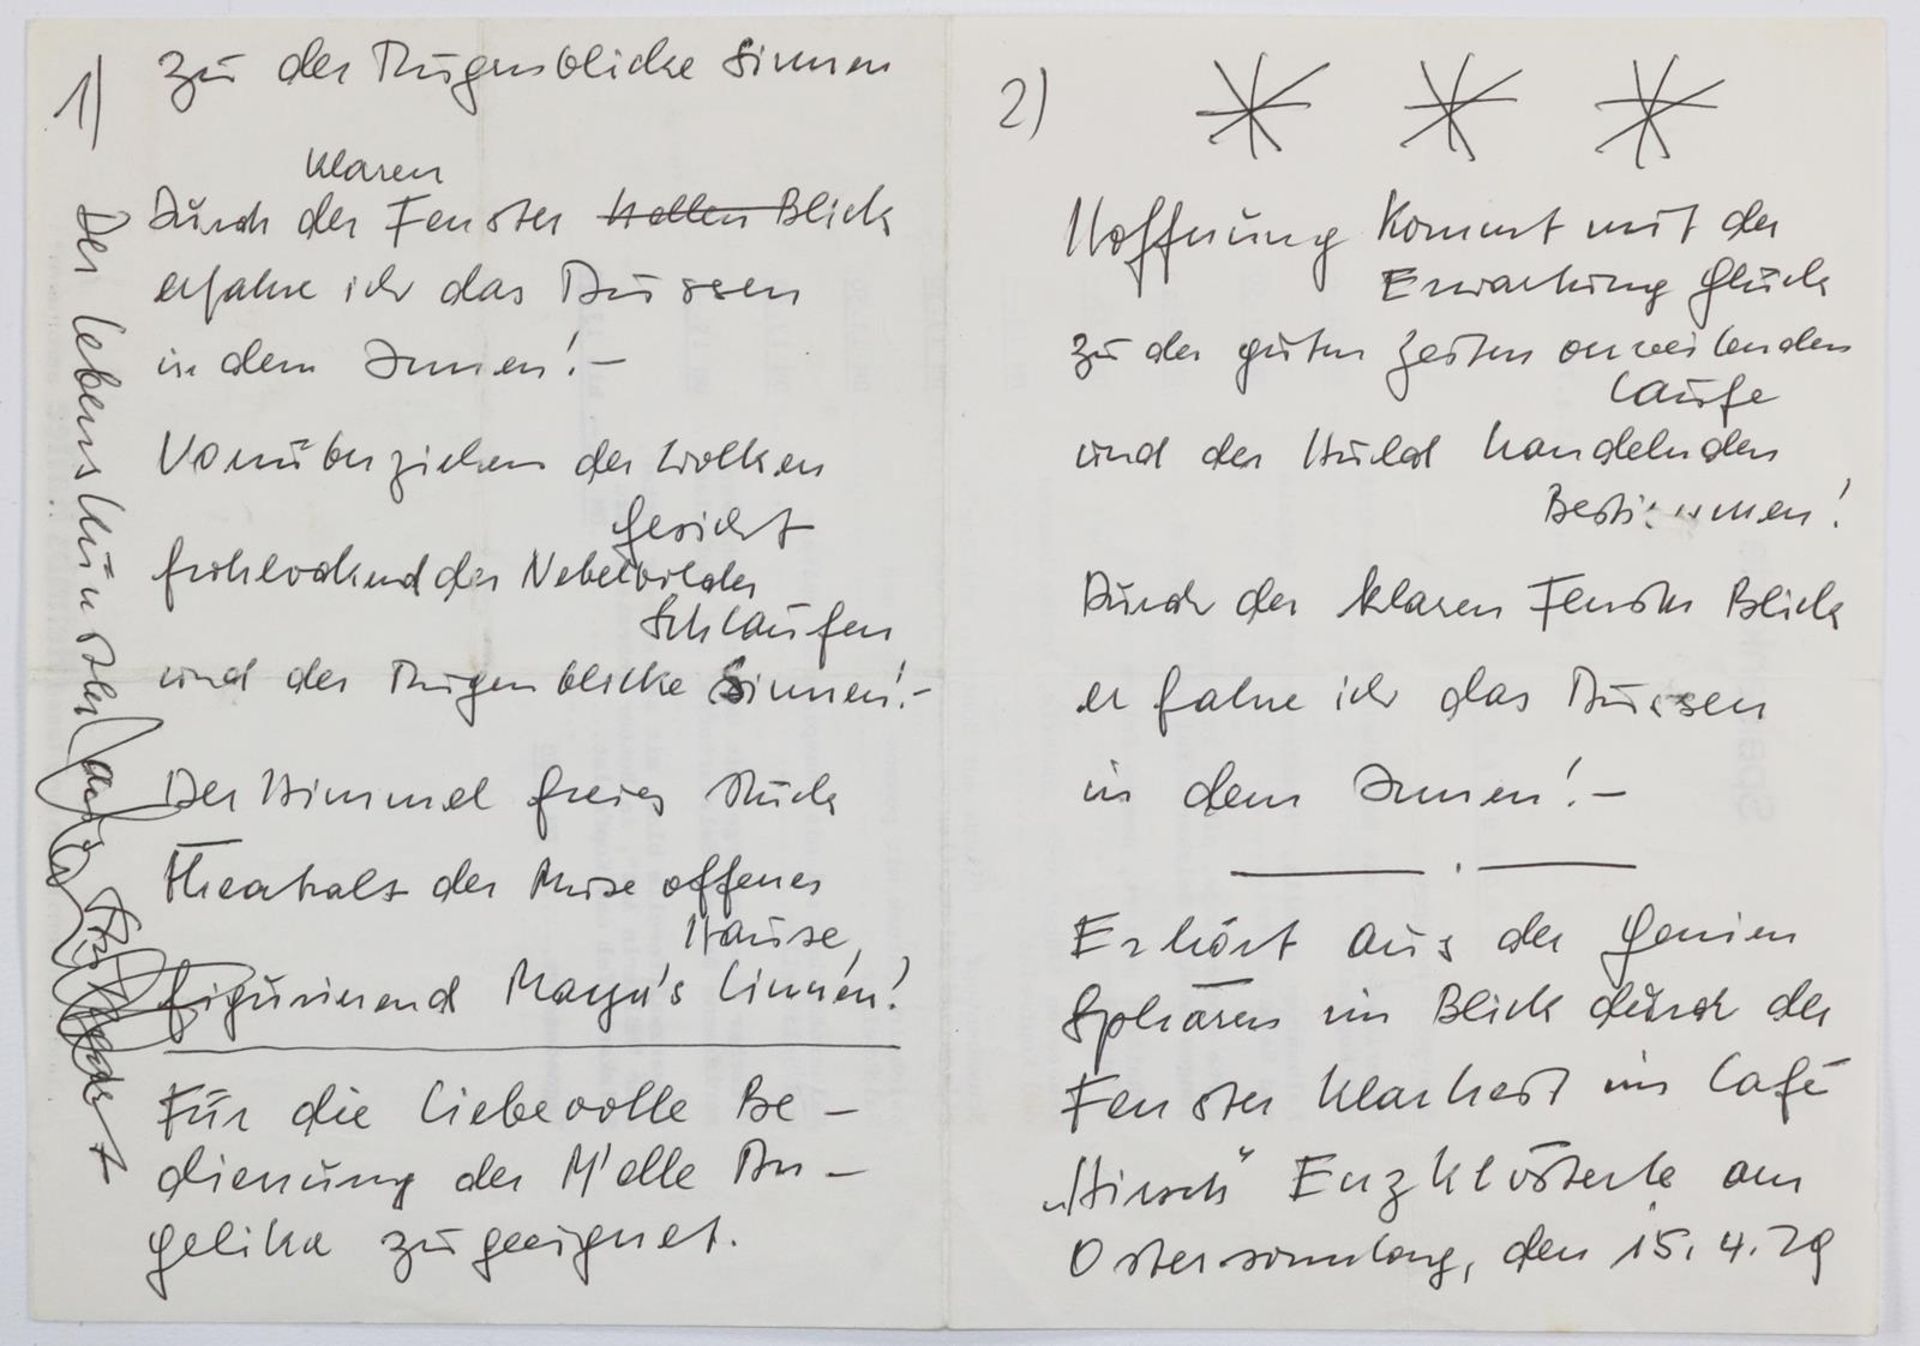 1)
Zu der Augenblicke Sinnen
klaren
Durch der Fenster hellen Blick
erfahre ich das Aussen
in dem Innen! –
Vorrüberziehen der Wolken
Gesicht
frohlockend der Nebelbilder
Schlaufen
und der Augenblicke Sinnen! –
Der Himmel freies Stück
Theatrals der Muse offenes
Hause,
figurierend Maya's Linnen!
Für die liebevolle Be –
dienung der M'elle An –
gelika zugeeignet.
Der Lebenskünstler
2)
Hoffnung kommt mit der
Erwartung Glück
zu der guten Zeiten
Laufe
und der Huld handelnden
Bestimmen!
Durch der klaren Fenster Blick
erfahre ich das Aussen
in dem Innen! –
Erhört aus der Genien
Sphären im Blick durch der
Fenster Klarheit im Café
„Hirsch" Enzklösterle am
Ostersonntag, den 15. 4. 79